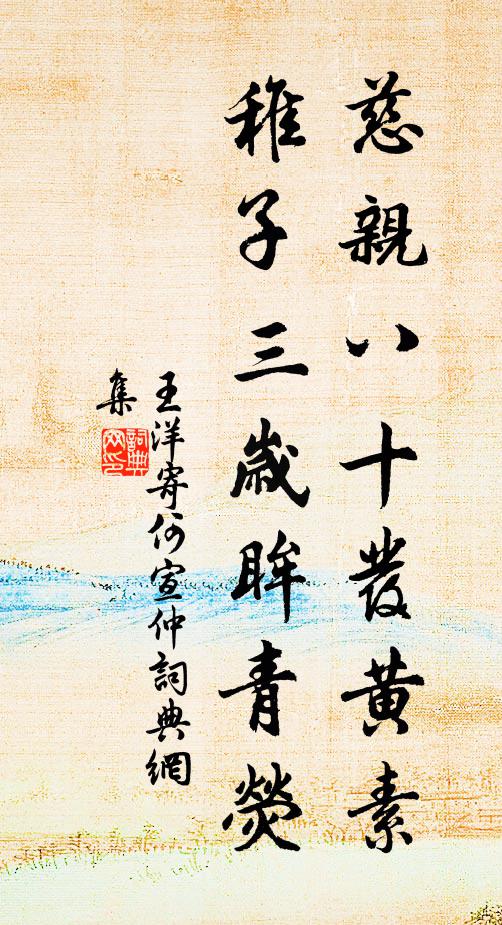 慈親八十發黃素
稚子三歲眸青熒
王洋寄何宣仲詞典網
集
詞典網印